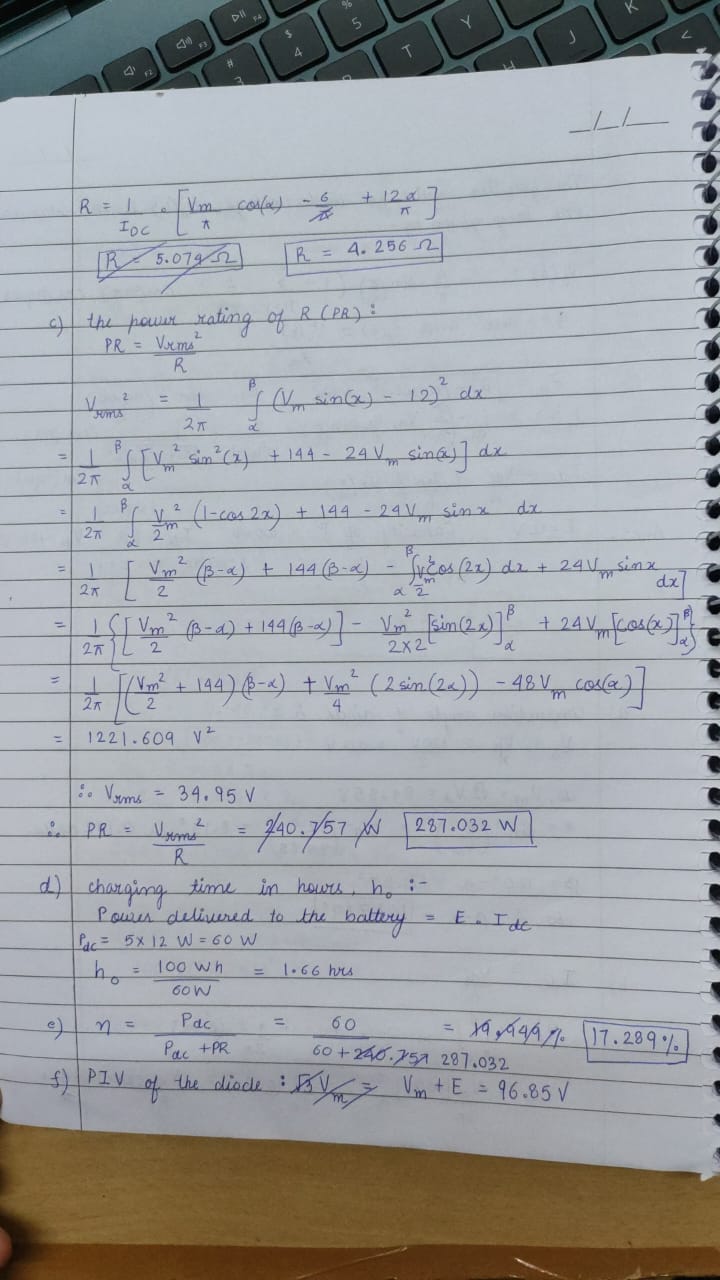 F2
F3
DII F4
#
3
$
4
%
5
T
Y
H
J
K
<
_/_/_
R = 1/I_DC . [V_m/π cos(α) - 6 + 12α/π]
R = 5.079 Ω R = 4.256 Ω
c) the power rating of R (PR) :
PR = V_rms²/R
V_rms² = 1/2π ∫_α^β (V_m sin(x) - 12)² dx
= 1/2π ∫_α^β [V_m² sin²(x) + 144 - 24 V_m sin(x)] dx
= 1/2π ∫_α^β V_m²/2 (1-cos 2x) + 144 - 24 V_m sin x dx
= 1/2π [V_m²/2 (β-α) + 144 (β-α) - ∫_α^β V_m²/2 cos (2x) dx + 24 V_m sin x dx]
= 1/2π {[V_m²/2 (β-α) + 144 (β-α)] - V_m²/2×2 [sin(2x)]_α^β + 24 V_m [cos(x)]_α^β}
= 1/2π [(V_m²/2 + 144) (β-α) + V_m²/4 (2 sin(2α)) - 48 V_m cos(α)]
= 1221.609 V²
∴ V_rms = 34.95 V
∴ PR = V_rms²/R = 240.757 W 287.032 W
d) charging time in hours, h₀ :-
Power delivered to the battery = E . I_dc
P_dc = 5 x 12 W = 60 W
h₀ = 100 Wh/60W = 1.66 hrs
e) η = P_dc/(P_dc + PR) = 60/(60 + 240.757 287.032) = 19.949 % 17.289 %
f) PIV of the diode : √3 V_m = V_m + E = 96.85 V